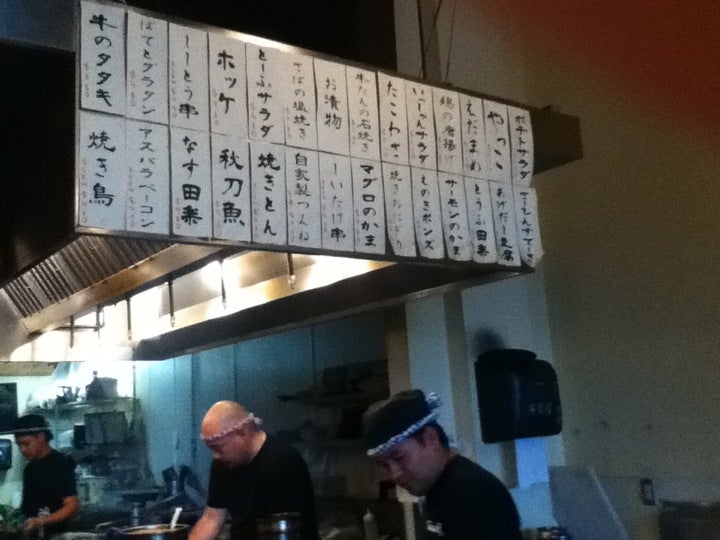 ポテトサラダ
やっこ
えだまめ
鶏の唐揚げ
たこわさ
牛たんの石焼き
お漬物
さばの塩焼き
とーふサラダ
ホッケ
ししとう串
ぽてとグラタン
牛のタタキ
あげだし豆腐
とうふ田楽
サーモンのかま
えのきポンズ
焼きおにぎり
マグロのかま
しいたけ串
自家製つくね
焼きとん
秋刀魚
なす田楽
アスパラベーコン
焼き鳥